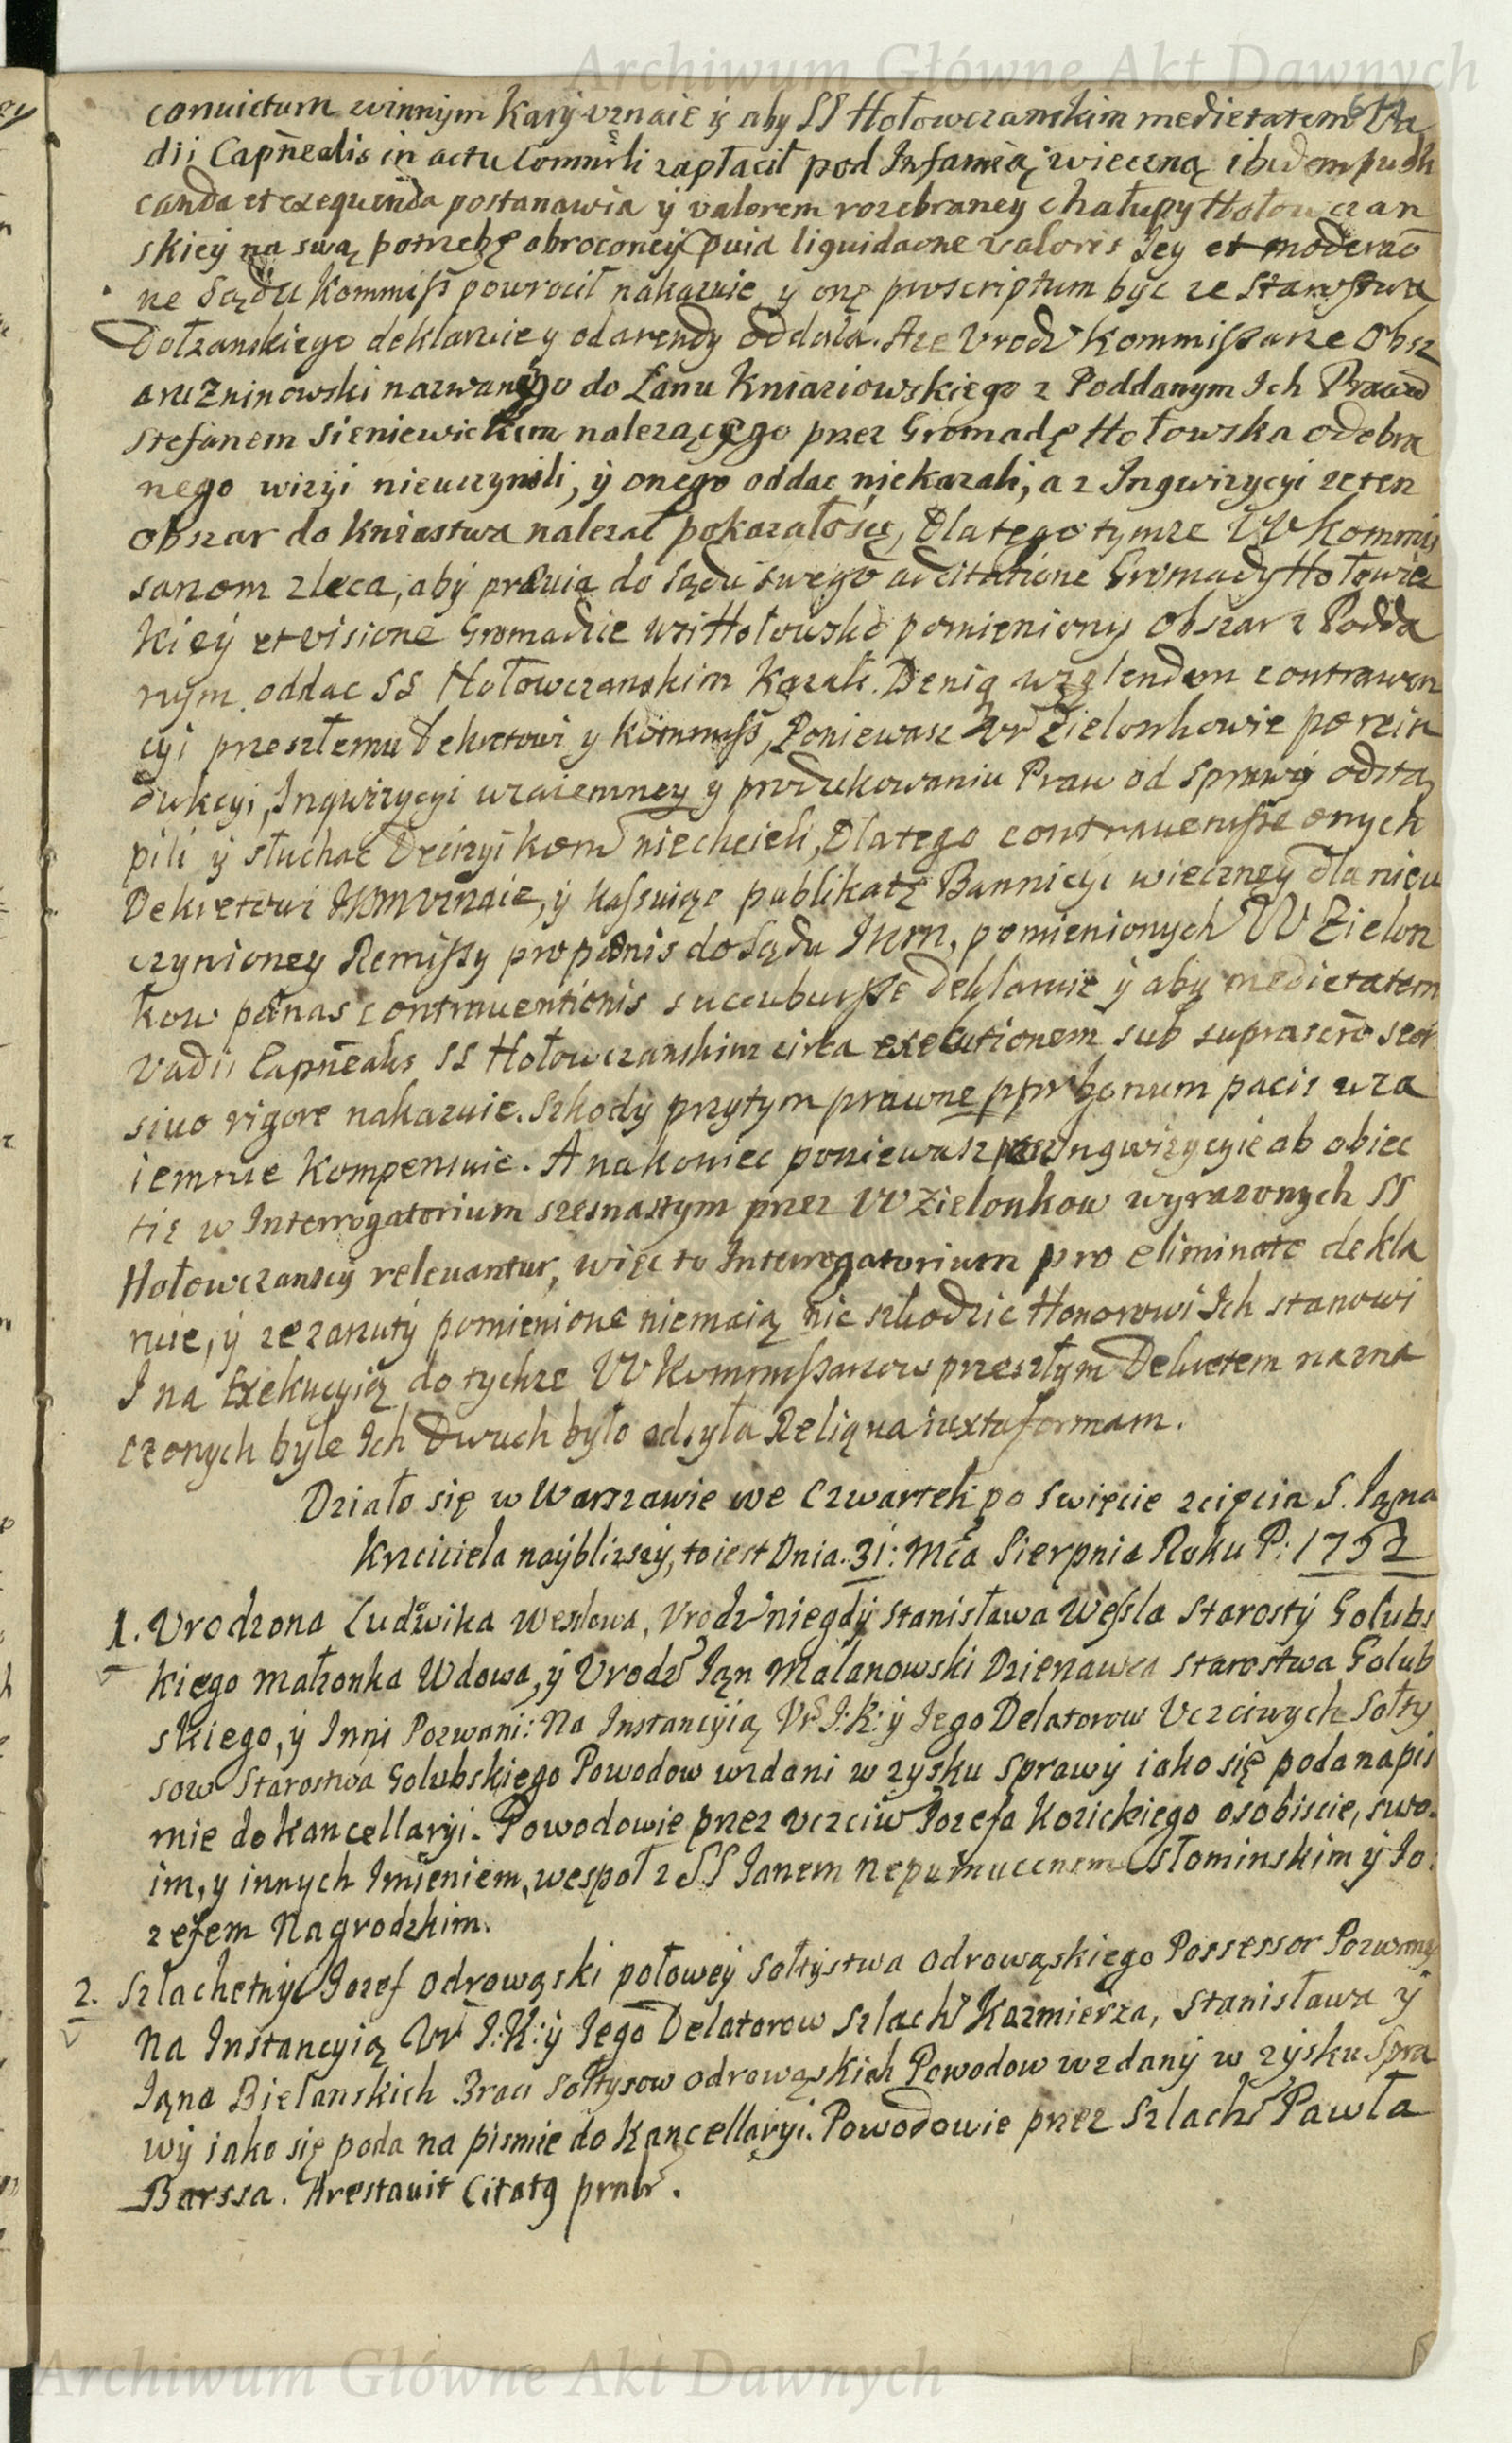 Archiwum Główne Akt Dawnych
convictum winnym Kary uznaie y aby SS Hołowczanskim medietatem Va
dii Capnealis in actu Commisli zapłacił pod Infamią wieczną ibidem publi
canda et exequenda postanawia y valorem rozebraney chałupy Hołowczan
skiey na swą potrzebę obroconey pvia liquidaone valoris Jey et moderao
ne Sądu Kommiss powrocił nakazuie y onę proscriptum byc ze Starostwa
Dołzanskiego deklaruie y od arendy oddala. Aze Vrodz Kommissarze Obsz
aru Zninowski nazwanego do Łanu Kniaziowskiego z Poddanym Ich Prawd
Stefanem Sieniewickim nalezącego przez Gromadę Hołowska odebra
nego wizyi nieuczynili, y onego oddac niekazali, a z Inqwizycyi ze ten
obszar do Kniastwa nalezał pokazałosię, Dlatego tymze VV Kommis
sarzom zleca, aby prævia do Sądu swego adcitatione Gromady Hołowze
kiey et visione Gromadzie wsi Hołowsko pomieniony Obszar z Podda
nym oddac SS Hołowczanskim Kazali. Deniq względem contrawen
cyi przeszłemu Dekretowi y Kommiss, Poniewasz Vr Zielonkowie po rein
dukcyi, Inqwizycyi wzaiemney y produkowaniu Praw od Sprawy odstą
pili y słuchac Decyzyi kom niechcieli, Dlatego contravenisse onych
Dekretowi JKM uznaie, y kassuiąc publikatę Bannicyi wieczney dla nieu
czynioney Remissy pro pœnis do Sądu JKM, pomienionych VV Zielon
kow pœnas contraventionis succubuisse deklaruie y aby medietatem
Vadii Capnealis SS Hołowczanskim circa executionem sub suprascro
sivo rigore nakazuie. Szkody przytym prawne ppr bonum pacis wza
iemnie Kompensuie. A nakoniec poniewasz przez Inqwizycyie ab obiec
tis w Interrogatorium szesnastym przez VV Zielonkow wyrazonych SS
Hołowczanscy relevantur, więc to Interrogatorium pro eliminato dekla
ruie, y ze zarzuty pomienione niemaią nic szkodzic Honorowi Ich stanowi
I na Exekucyią do tychze VV Kommissarzow przeszłym Dekretem nazna
czonych byle Ich Dwuch było odsyła Reliqua iuxta formam.
Działo się w Warszawie we Czwartek po Swięcie scięcia S. Jana
Krzciciela naybliszszy, toiest Dnia. 31: Mca Sierpnia Roku P: 1752
1. Vrodzona Ludwika Wesslowa, Vrodz niegdy Stanisława Wessla Starosty Golubs
kiego małzonka Wdowa, y Vrodz Jan Małanowski Dzierzawca Starostwa Golub
skiego, y Inni Pozwani: Na Instancyią Vr I: K: y Jego Delatorow Vczciwych Sołty
sow Starostwa Golubskiego Powodow wzdani w zysku sprawy iako się poda napis
mie do Kancellaryi. Powodowie przez vczciw Jozefa Kozickiego osobiscie, swo
im, y innych Imieniem, wespoł z SS Janem Nepumucenem Słominskim y Jo
zefem Nagrodzkim.
2. Szlachetny Jozef Odrowązski połowey Sołtystwa Odrowąskiego Possessor Pozwany
Na Instancyią Vr I: K: y Jego Delatorow Szlach Kazmierza, Stanisława y
Jana Bielanskich Braci Sołtysow Odrowąskich Powodow wzdany w zysku Spra
wy iako się poda na pismie do Kancellaryi. Powodowie przez Szlach Pawła
Barssa. Arestavit Citatg
Archiwum Główne Akt Dawnych